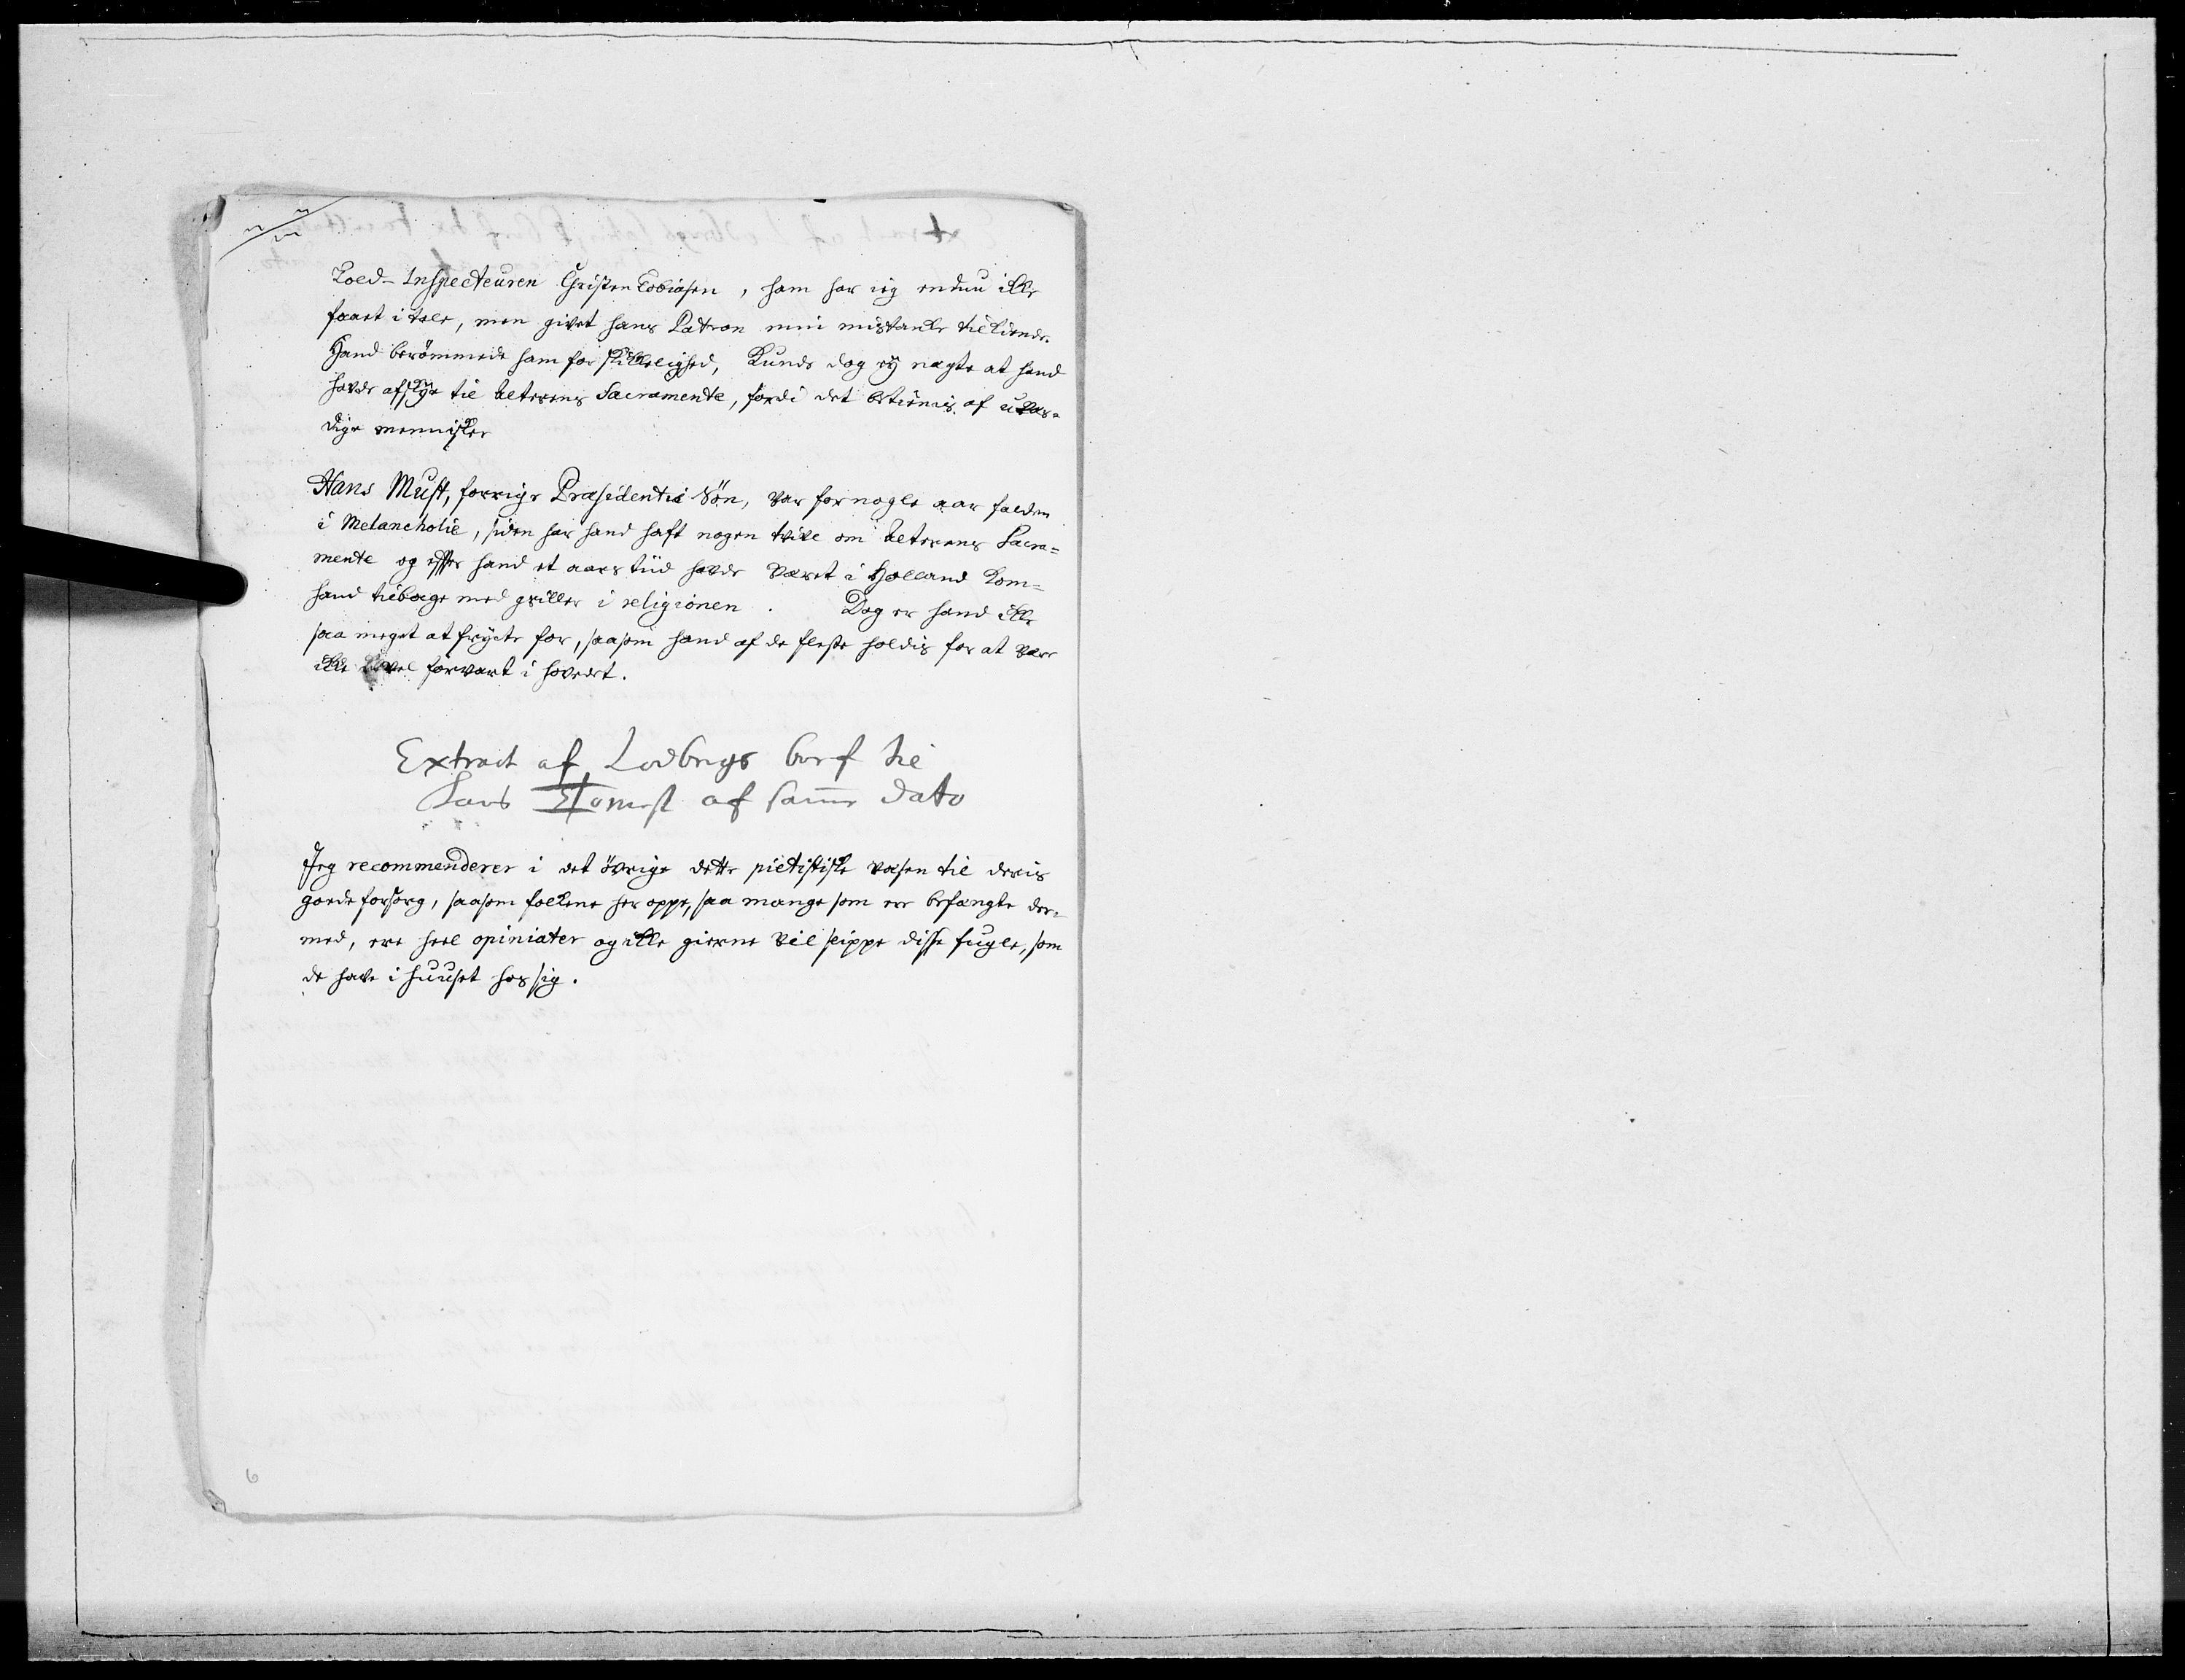 Told-Inspecteuren Christen Tobiasen, ham har ieg endnu icke
faaet i tale, men givet hans Patron min mistanke tilkiende.
Hand berömmede ham for skickelighed, Kunde dog ey nægte at hand
havde afskye til alterens Sacramente, fordi det betienis af uvær-
dige mennisker
Hans Must, forrige Præsidentis Sön, var for nogle aar falden
i Melancholie, siden har hand haft nogen tvivl om alterens Sacra=
mente og efter hand et aars tiid havde været i Holland Kom=
hand tilbage med griller i religionen. Dog er hand icke
saa meget at frycte for, saasom hand af de fleste holdis for at være
icke vel forvart i hovedet.
Extract af Lodbergs bref til
Hans af samme dato
Jeg recommenderer i det övrige dette pietistiske væsen til deris
goede forsorg, saasom folkene her oppe, saa mange som ere befængte der=
med, ere heel opiniater og icke gierne vil slippe disse fugle, som
de have i huuset hos sig.
6